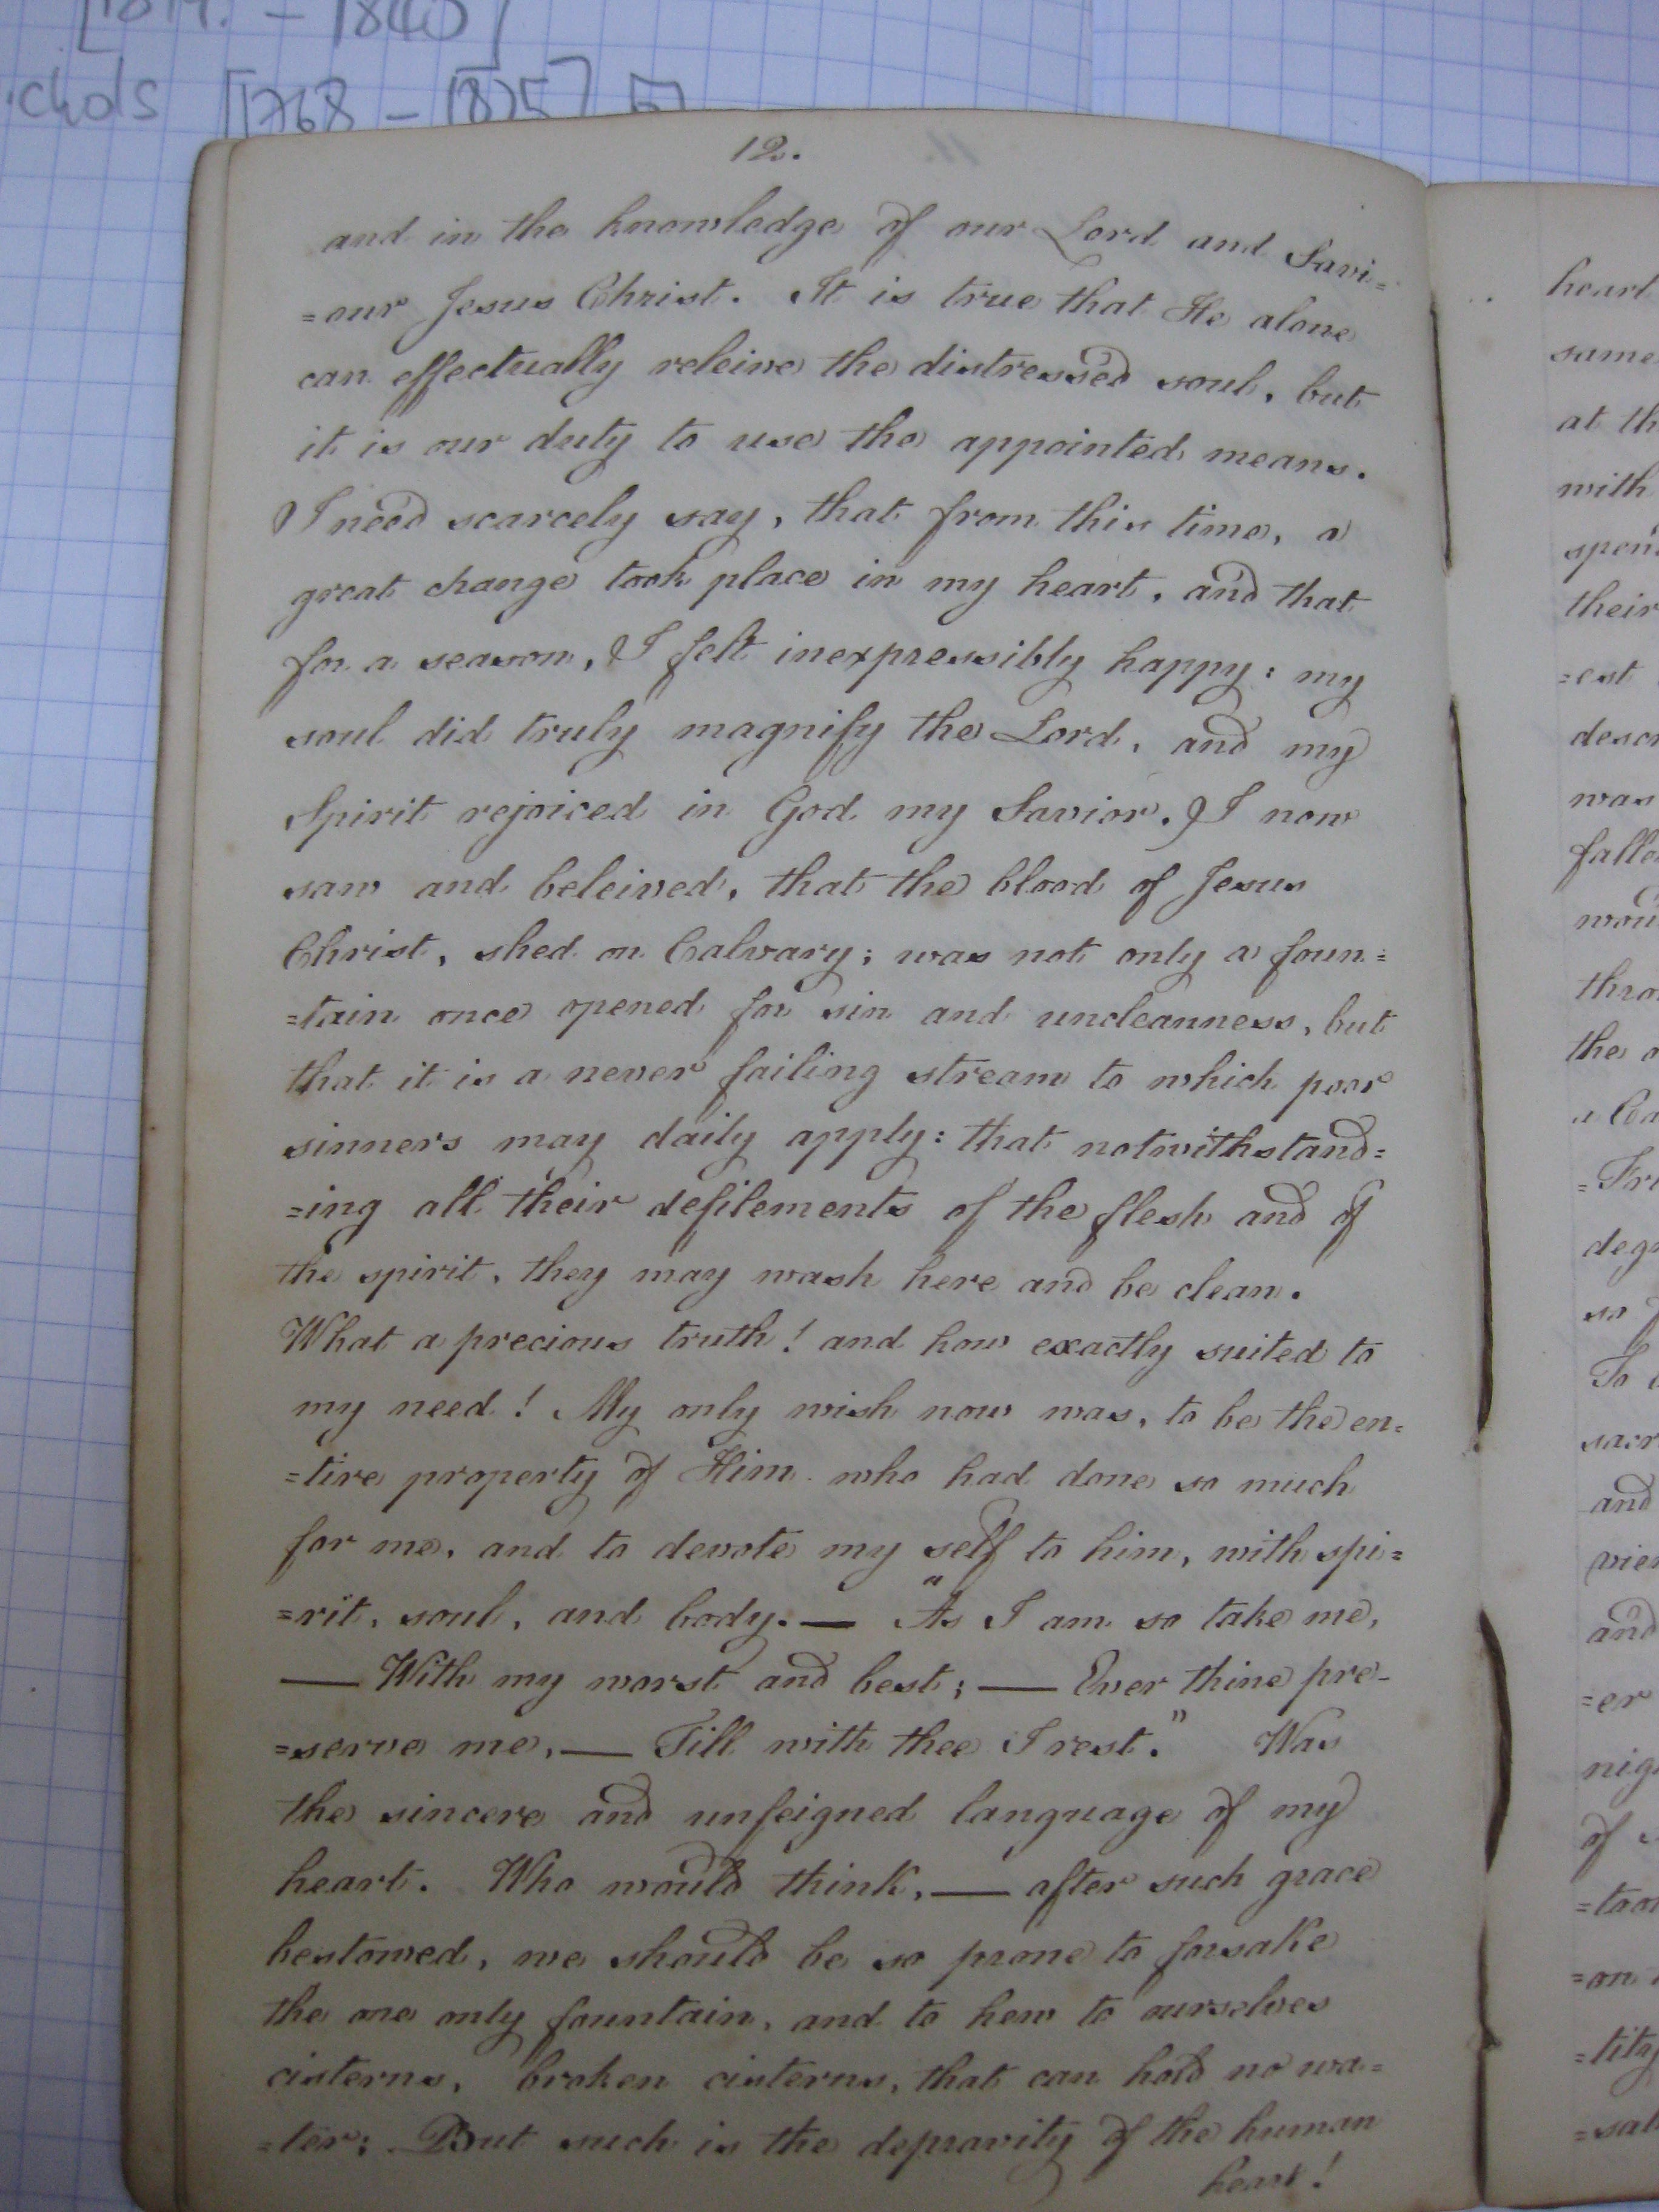 1840]
[1768 - 1825]
12.
and in the knowledge of our Lord and Savi=
=our Jesus Christ. It is true that He alone
can effectually releive the distressed soul, but
it is our duty to use the appointed means.
I need scarcely say, that from this time, a
great change took place in my heart, and that
for a season, I felt inexpressibly happy: my
soul did truly magnify the Lord, and my
Spirit rejoiced in God my Savior. I now
saw and beleived, that the blood of Jesus
Christ, shed on Calvary; was not only a foun=
=tain once opened for sin and uncleanness, but
that it is a never failing stream to which poor
sinners may daily apply: that notwithstand=
=ing all their defilements of the flesh and of
the spirit, they may wash here and be clean.
What a precious truth! and how exactly suited to
my need! My only wish now was, to be the en=
=tire property of Him who had done so much
for me, and to devote my self to him, with spi=
=rit, soul, and body. — "As I am so take me,
— With my worst and best; — Ever thine pre-
=serve me, — Till with thee I rest." Was
the sincere and unfeigned language of my
heart. Who would think, — after such grace
bestowed, we should be so prone to forsake
the one only fountain, and to hew to ourselves
cisterns, broken cisterns, that can hold no wa=
=ter: But such is the depravity of the human
heart!
heart
same
at th
with
their
=est
was
the
and
and
=er
of
=on